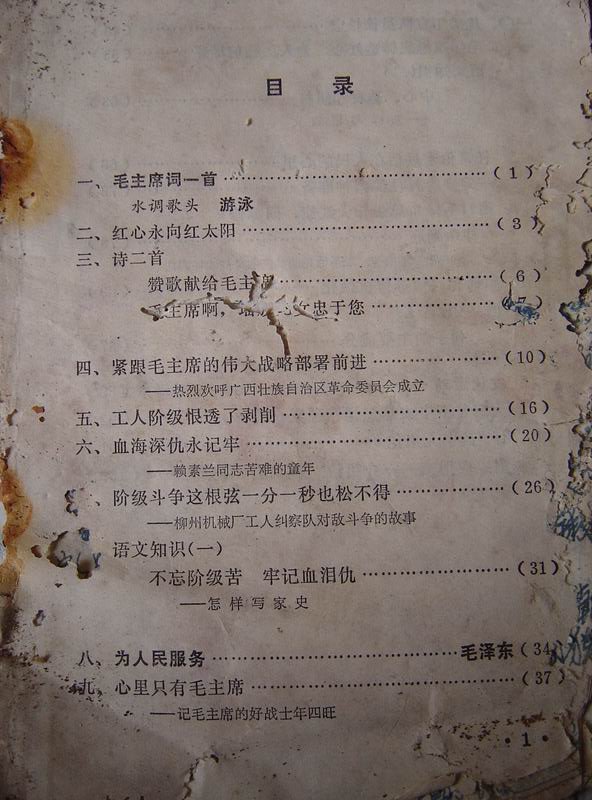 目 录
一、毛主席词一首……………………………（1）
水调歌头 游泳
二、红心永向红太阳……………………………（3）
三、诗二首
赞歌献给毛主……………………………（6）
主席啊，忠于您……………………（7）
四、紧跟毛主席的伟大战略部署前进………………（10）
——热烈欢呼广西壮族自治区革命委员会成立
五、工人阶级恨透了剥削……………………………（16）
六、血海深仇永记牢……………………………（20）
——赖素兰同志苦难的童年
、阶级斗争这根弦一分一秒也松不得……………（26）
——柳州机械厂工人纠察队对敌斗争的故事
语文知识（一）
不忘阶级苦 牢记血泪仇………………（31）
——怎样写家史
八、为人民服务……………………………毛泽东（34
九、心里只有毛主席……………………………（37）
——记毛主席的好战士年四旺
·1·